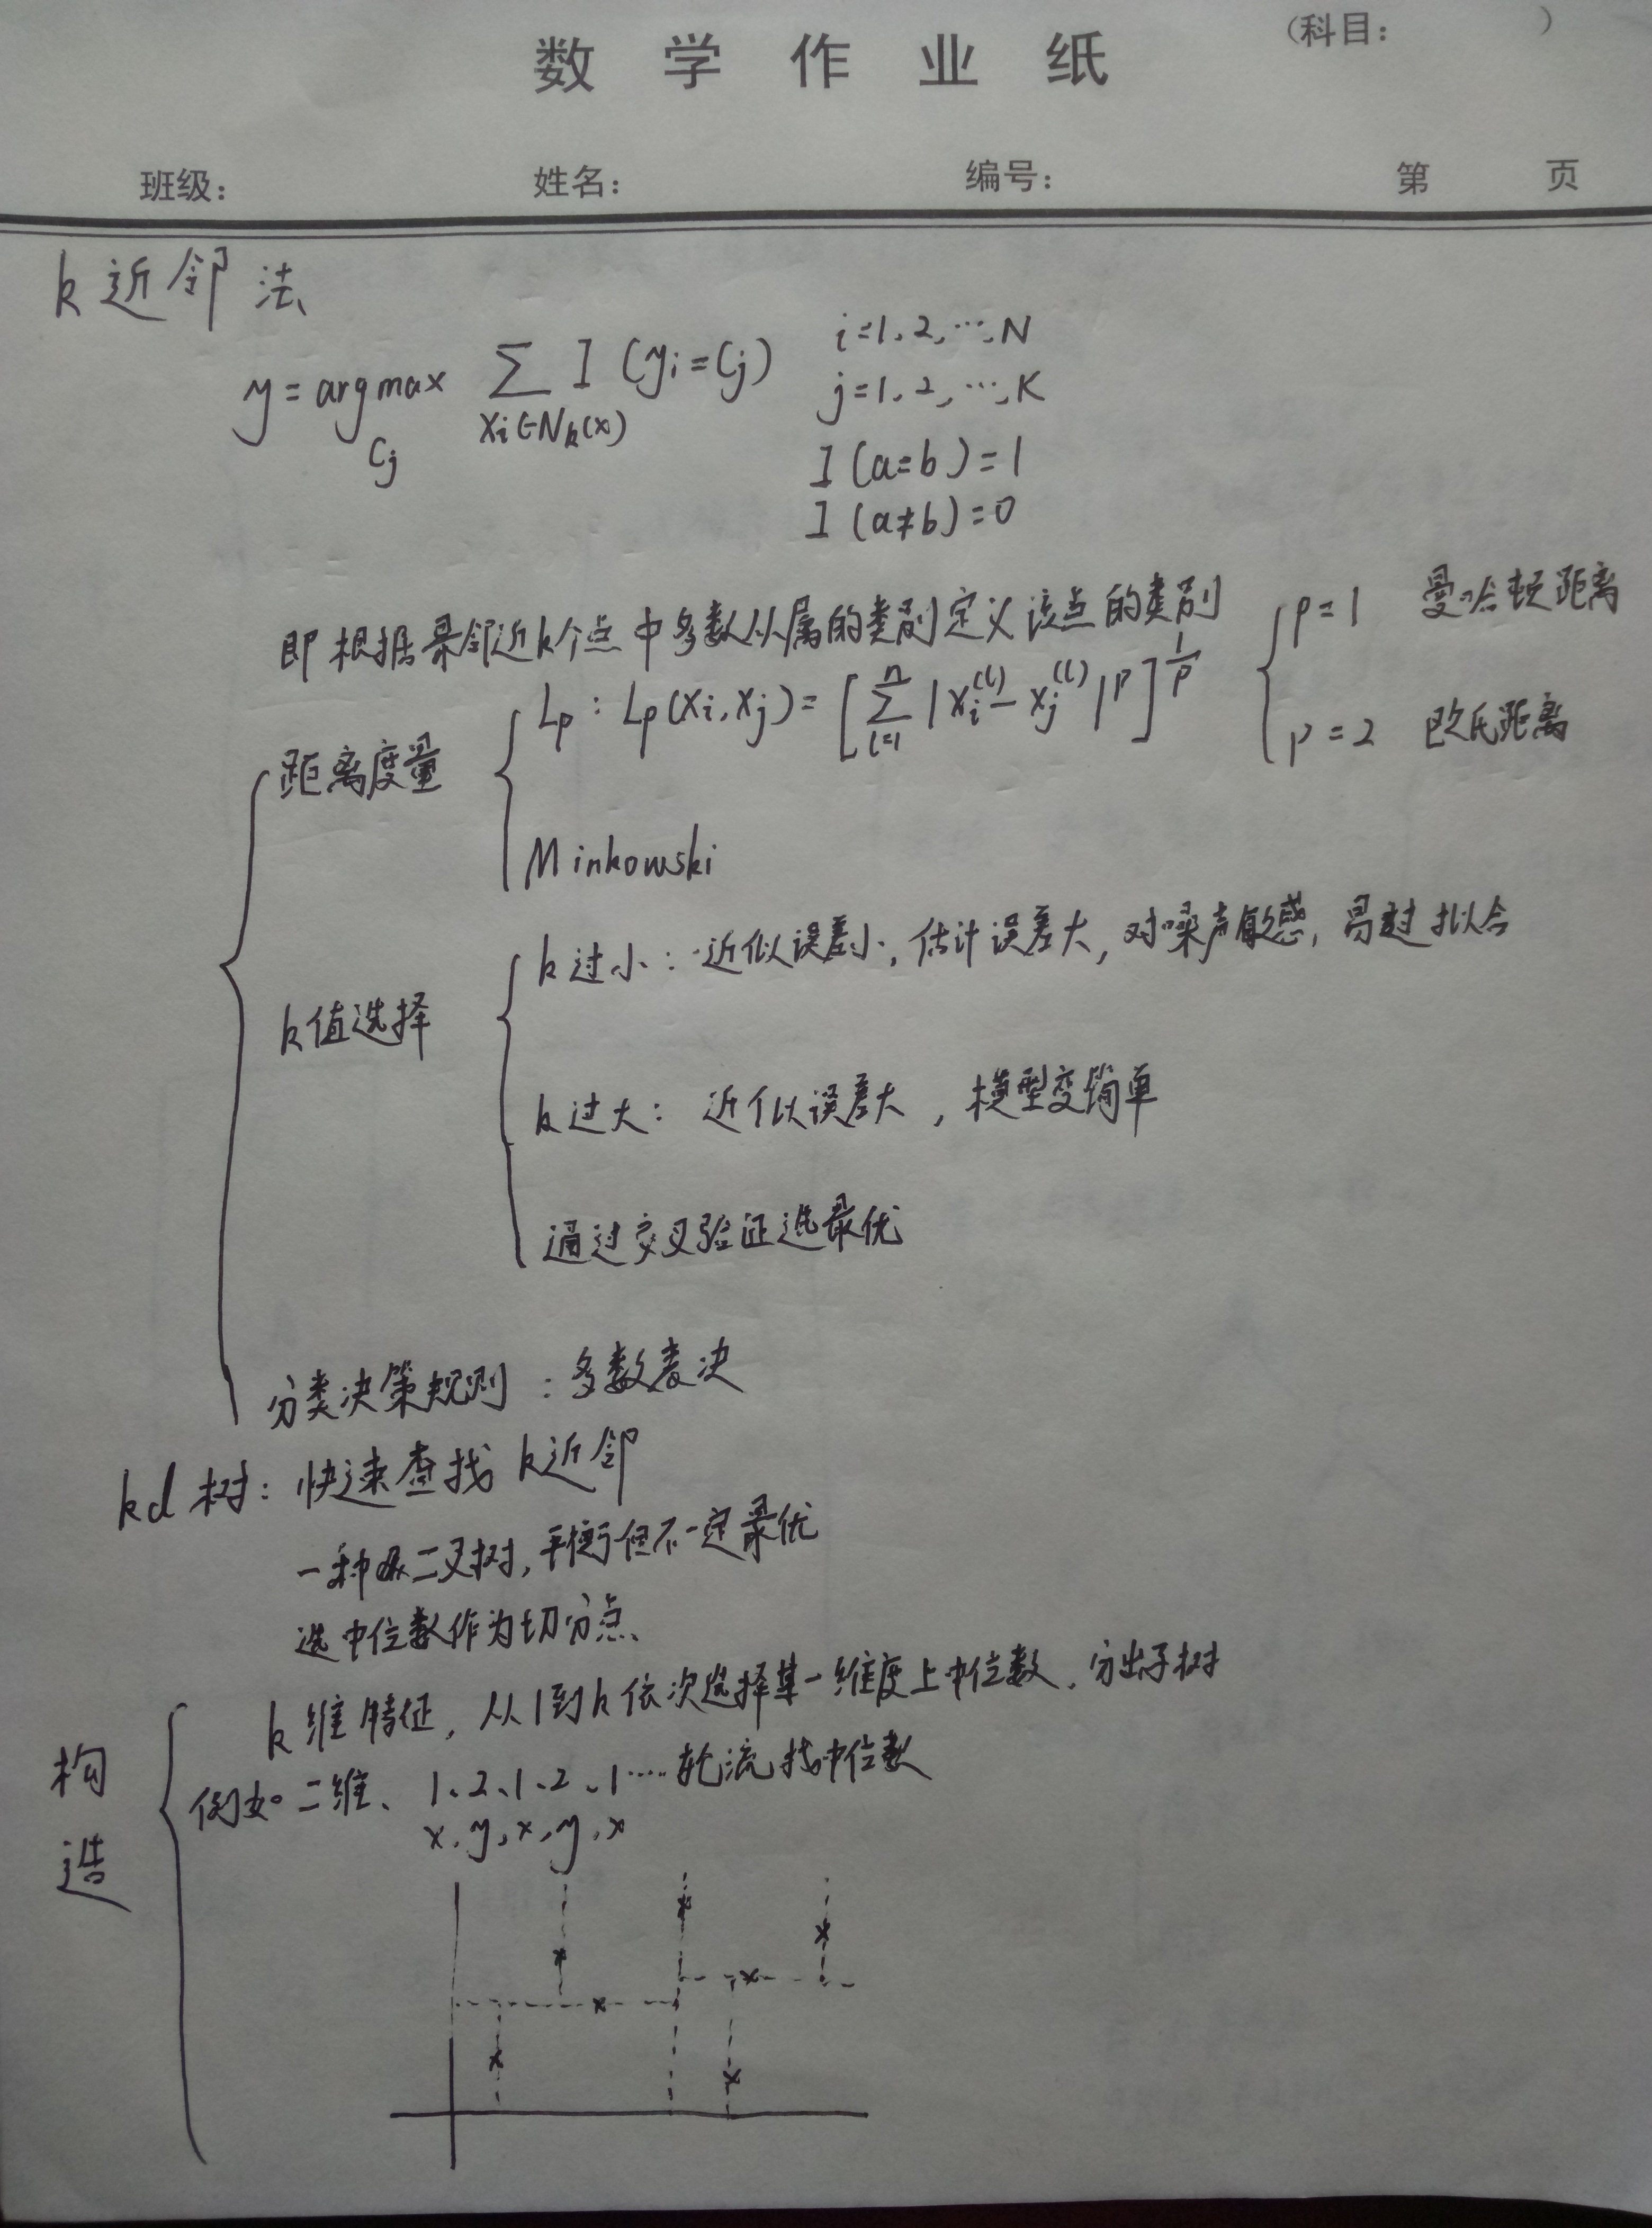 （科目：　　　）
数学作业纸
班级：　姓名：　编号：　第　页
k近邻法
y = argmax_{Cj} ∑_{xi∈Nk(x)} I(yi=Cj)　i=1,2,…,N
j=1,2,…,K
I(a=b)=1
I(a≠b)=0
即根据最邻近k个点中多数从属的类别定义该点的类别
距离度量
Lp：Lp(xi,xj)=[∑_{l=1}^{n}|xi^(l)-xj^(l)|^p]^{1/p}
p=1　曼哈顿距离
p=2　欧氏距离
Minkowski
k值选择
k过小：近似误差小，估计误差大，对噪声敏感，易过拟合
k过大：近似误差大，模型变简单
通过交叉验证选最优
分类决策规则：多数表决
kd树：快速查找k近邻
一种二叉树，平衡但不一定最优
选中位数作为切分点
构造
k维特征，从1到k依次选择某一维度上中位数，分出子树
例如二维、1、2、1、2、1……轮流找中位数
x, y, x, y, x